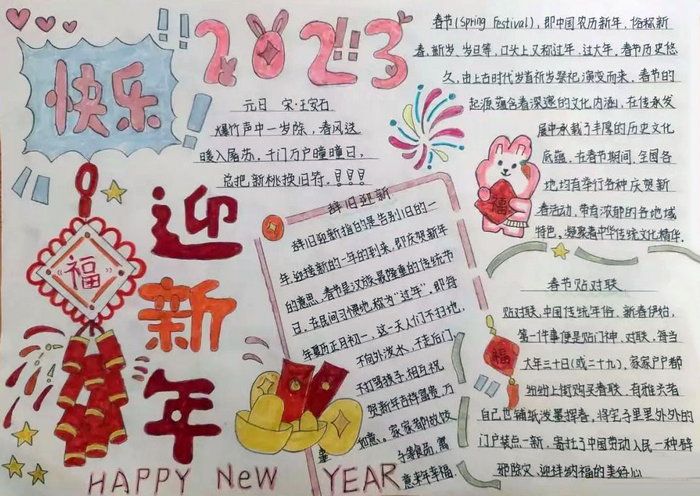 快乐
2023
元日 宋·王安石
爆竹声中一岁除，春风送
暖入屠苏，千门万户曈曈日，
总把新桃换旧符，！！！
春节(Spring Festival)，即中国农历新年，俗称新
春、新岁、岁旦等，口头上又称过年、过大年，春节历史悠
久，由上古时代岁首祈岁祭祀演变而来，春节的
起源蕴含着深邃的文化内涵，在传承发
展中承载了丰厚的历史文化
底蕴，在春节期间，全国各
地均有举行各种庆贺新
春活动，带有浓郁的各地域
特色，凝聚着中华传统文化精华.
福
迎
新
年
福
辞旧迎新
辞旧迎新指的是告别旧的一
年，迎接新的一年的到来，即庆贺新年
的意思，春节是汉族最隆重的传统节
日，在民间习惯地称为“过年”，即每
年夏历正月初一，这一天人们不扫地，
不向外泼水，不走后门，
不打骂孩子，相互祝
贺新年吉祥富贵，万
事如意。家家都做饭
寓意来年幸福.
春节贴对联
贴对联，中国传统年俗，新春伊始，
第一件事便是贴门神，对联，每当
大年三十日(或二十九)，家家户户都
纷纷上街购买春联，有雅兴者
自己也铺纸泼墨挥春，将宅子里里外外的
门户装点一新，寄托了中国劳动人民一种辟
邪除灾，迎祥纳福的美好心
福
HAPPY NeW YEAR